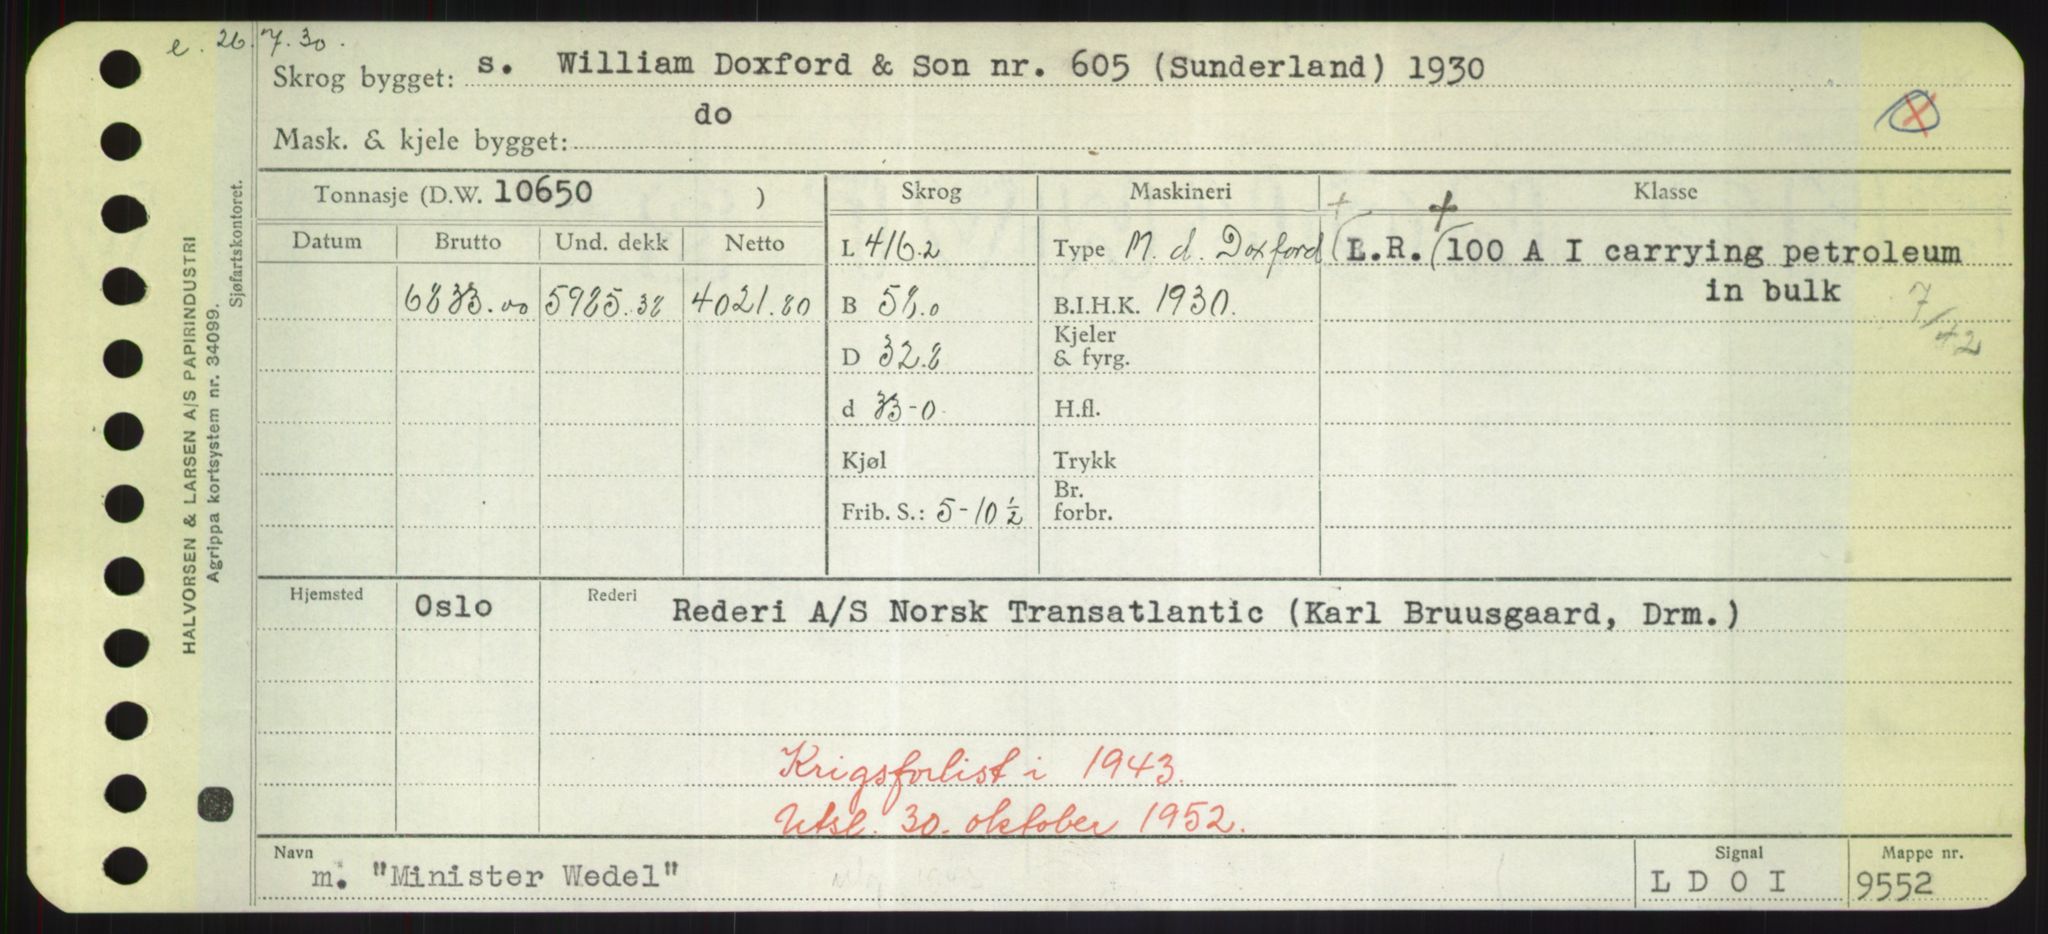 e. 26.7.30.
Skrog bygget: s. William Doxford & Son nr. 605 (Sunderland) 1930
do
Mask. & kjele bygget:
Tonnasje (D.W. 10650 ) Skrog Maskineri Klasse
Datum Brutto Und. dekk Netto L 416.2 Type M. d. Doxford (L.R. (100 A I carrying petroleum
in bulk
6833.00 5985.38 4021.80 B 58.0 B.I.H.K. 1930. 7/42
D 32.8 Kjeler & fyrg.
d 33-0 H.fl.
Kjøl Trykk
Frib. S.: 5-10 ½ Br. forbr.
Hjemsted Oslo Rederi Rederi A/S Norsk Transatlantic (Karl Bruusgaard, Drm.)
Krigsforlist i 1943.
Utsl. 30. oktober 1952.
Navn Signal Mappe nr.
m. "Minister Wedel" L D O I 9552
HALVORSEN & LARSEN A/S PAPIRINDUSTRI
Agrippa kortsystem nr. 34099.
Sjøfartskontoret.